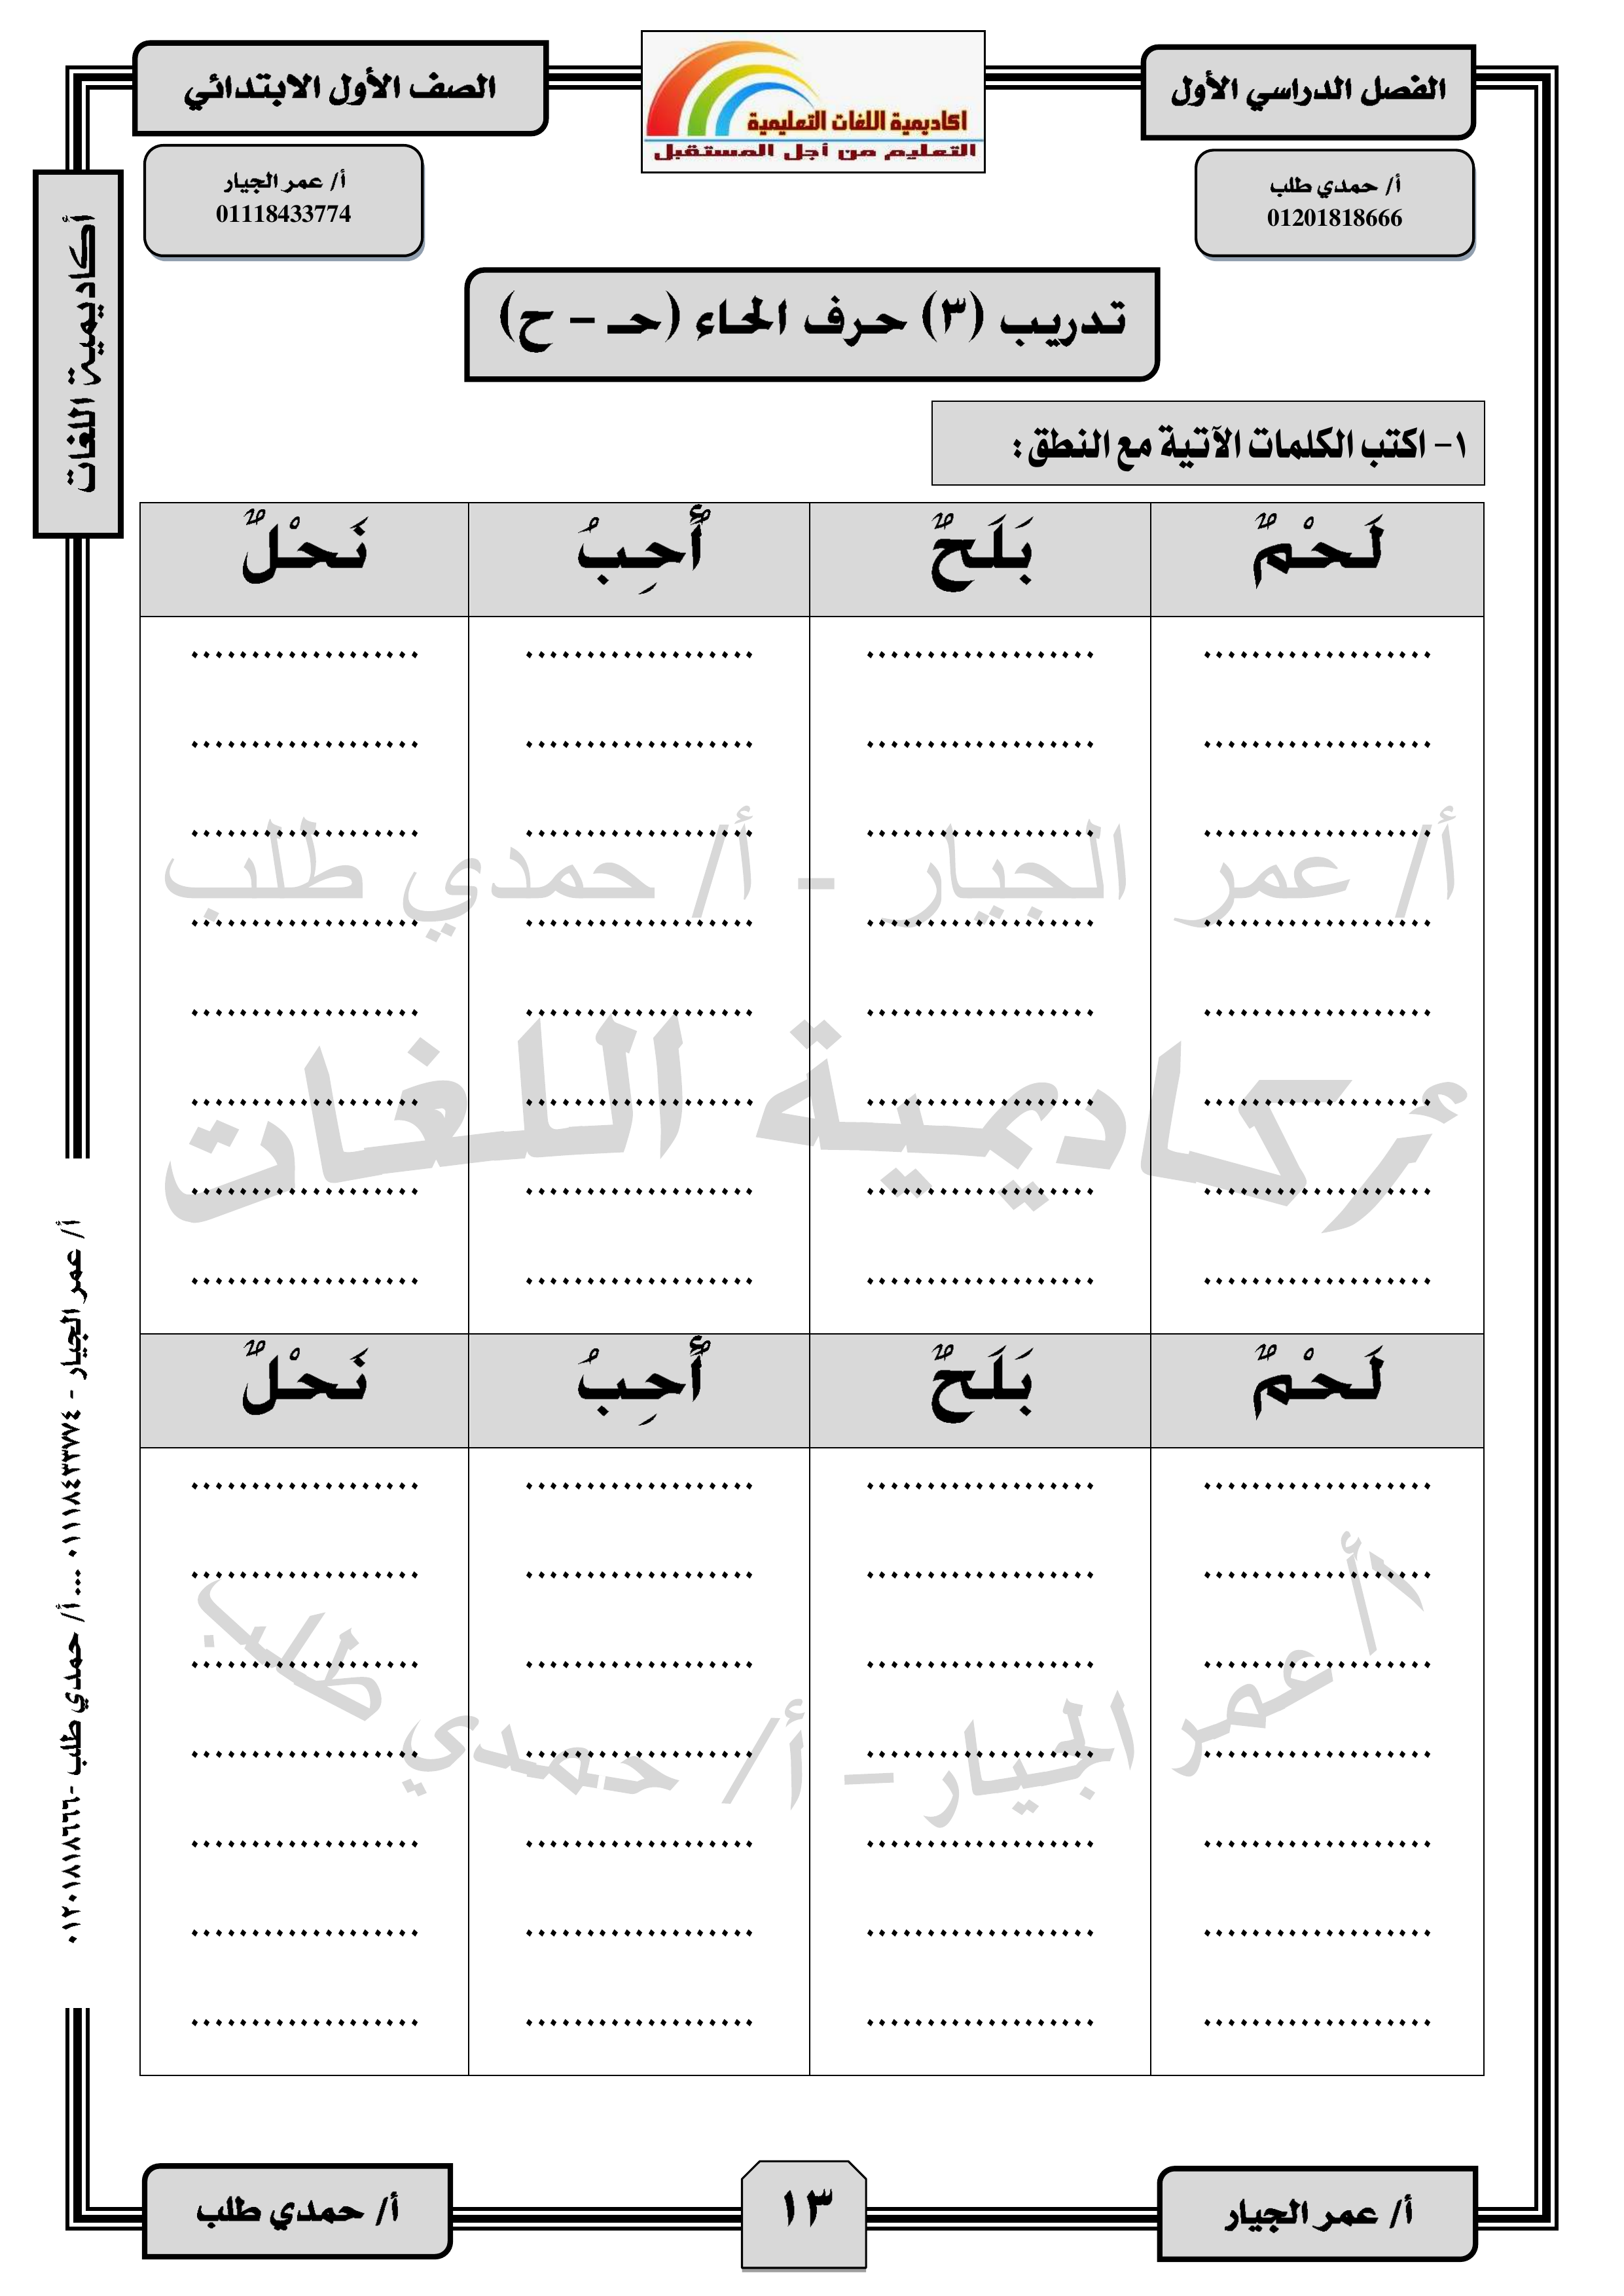 الفصل الدراسي الأول
اكاديمية اللغات التعليمية
التعليم من أجل المستقبل
الصف الأول الابتدائي
أ/ حمدي طلب
01201818666
أ/ عمر الجيار
01118433774
أكاديمية اللغات
تدريب (٣) حرف الحاء (حـ – ح)
١- اكتب الكلمات الآتية مع النطق :
لَحْمٌ بَلَحٌ أُحِبُ نَحْلٌ
.................. .................. .................. ..................
.................. .................. .................. ..................
.................. .................. .................. ..................
أ/ عمر الجيار - أ/ حمدي طلب
.................. .................. .................. ..................
.................. .................. .................. ..................
أكاديمية اللغات
.................. .................. .................. ..................
.................. .................. .................. ..................
.................. .................. .................. ..................
لَحْمٌ بَلَحٌ أُحِبُ نَحْلٌ
.................. .................. .................. ..................
.................. .................. .................. ..................
.................. .................. .................. ..................
أ/ عمر الجيار – أ/ حمدي طلب
.................. .................. .................. ..................
.................. .................. .................. ..................
.................. .................. .................. ..................
.................. .................. .................. ..................
أ/ عمر الجيار - ٠١١١٨٤٣٣٧٧٤ ... أ/ حمدي طلب -٠١٢٠١٨١٨٦٦٦
أ/ عمر الجيار
١٣
أ/ حمدي طلب